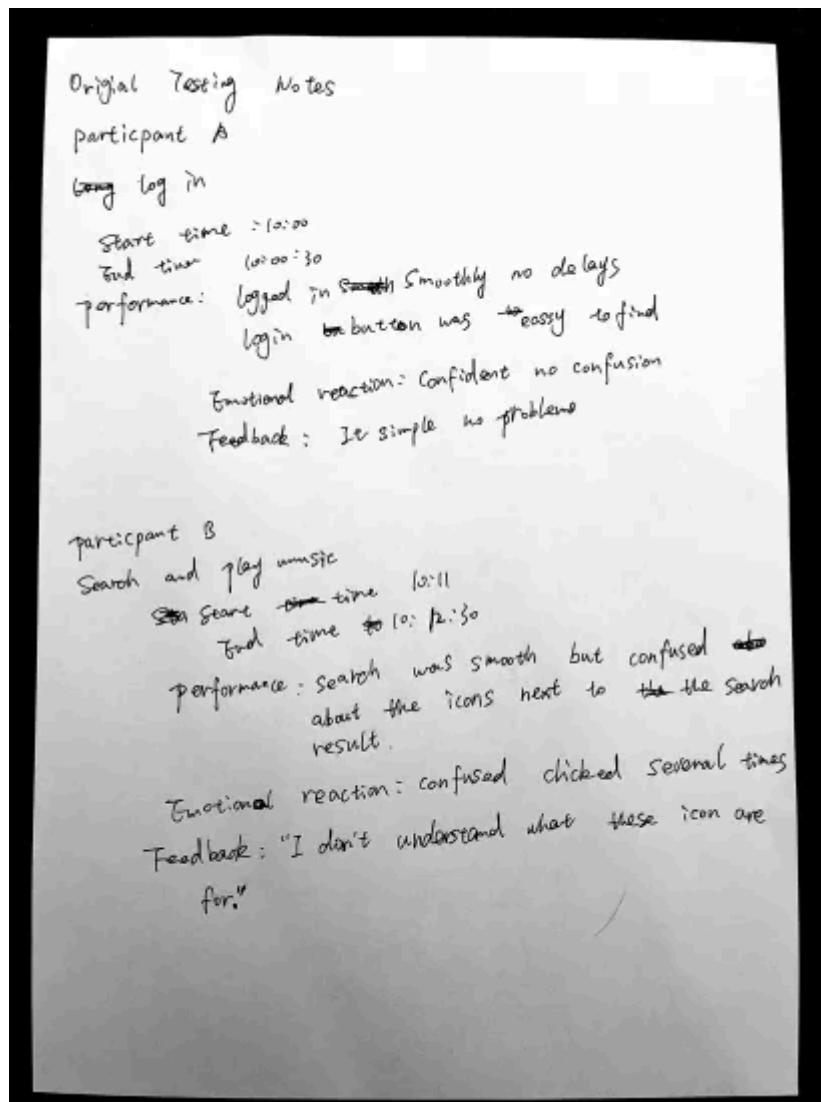 Origial Testing Notes
particpant A
log in
Start time : 10:00
End time 10:00:30
performance: logged in Smoothly no delays
login button was eassy to find
Emotional reaction: Confident no confusion
Feedback: It simple no problems
particpant B
Search and play music
Start time 10:11
End time 10:12:30
performance: search was smooth but confused
about the icons next to the search
result.
Emotional reaction: confused clicked several times
Feedback: "I don't understand what these icon are
for."